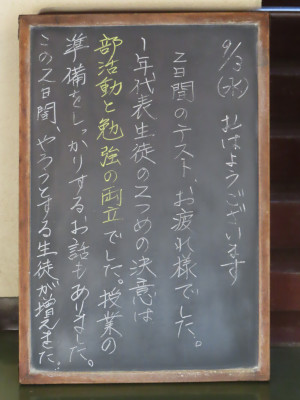 9/3(水) おはようございます
2日間のテスト、お疲れ様でした。
1年代表生徒の2つめの決意は
部活動と勉強の両立でした。授業の
準備をしっかりするお話もありました。
この2日間、やろうとする生徒が増えました。